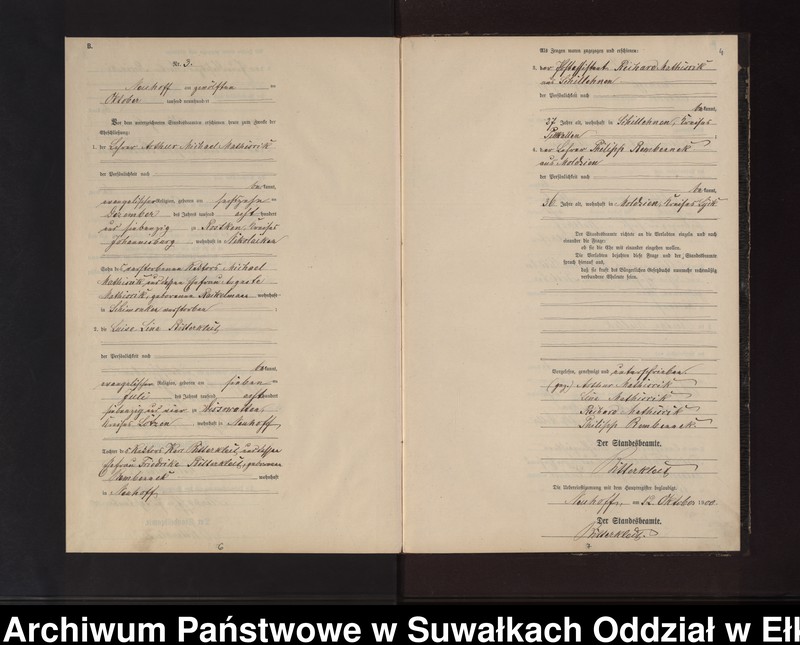 B.
Nr. 3.
Neuhoff am zwölften
Oktober tausend neunhundert
Vor dem unterzeichneten Standesbeamten erschienen heute zum Zwecke der
Eheschließung:
1. der Lehrer Arthur Michael Mathiszik
der Persönlichkeit nach
be kannt,
evangelischer Religion, geboren am sechszehn ten
Dezember des Jahres tausend acht hundert
und siebenzig in Kreises
Johannisburg wohnhaft in Nikolaiken
Sohn des verstorbenen Rektors Michael
Mathiszik und dessen Ehefrau
Mathiszik, geborenen wohnhaft
in Schimonken verstorben ;
2. die Luise Line Ritterkleit
der Persönlichkeit nach
be kannt,
evangelischer Religion, geboren am sieben ten
Juli des Jahres tausend acht hundert
siebenzig und in
Kreises Lötzen wohnhaft in Neuhoff
Tochter des Kantors Ritterkleit und dessen
Ehefrau Friedrike Ritterkleit, geborenen
Rembenneck wohnhaft
in Neuhoff
6
4
Als Zeugen waren zugezogen und erschienen:
3. der Richard Mathiszik
aus Schillehnen
der Persönlichkeit nach
be kannt,
37 Jahre alt, wohnhaft in Schillehnen, Kreises
Pillkallen ;
4. der Lehrer Philipp Rembenneck
aus Moldzien
der Persönlichkeit nach
be kannt,
36 Jahre alt, wohnhaft in Moldzien, Kreises Lyck
Der Standesbeamte richtete an die Verlobten einzeln und nach
einander die Frage:
ob sie die Ehe mit einander eingehen wollen.
Die Verlobten bejahten diese Frage und der Standesbeamte
sprach hierauf aus,
daß sie kraft des Bürgerlichen Gesetzbuchs nunmehr rechtmäßig
verbundene Eheleute seien.
Vorgelesen, genehmigt und unterschrieben
(gez.) Arthur Mathiszik
Line Mathiszik
Richard Mathiszik
Philipp Rembenneck
Der Standesbeamte.
Ritterkleit
Die Uebereinstimmung mit dem Hauptregister beglaubigt.
Neuhoff, am 12. Oktober 1900
Der Standesbeamte.
Ritterkleit
7
Archiwum Państwowe w Suwałkach Oddział w Ełk